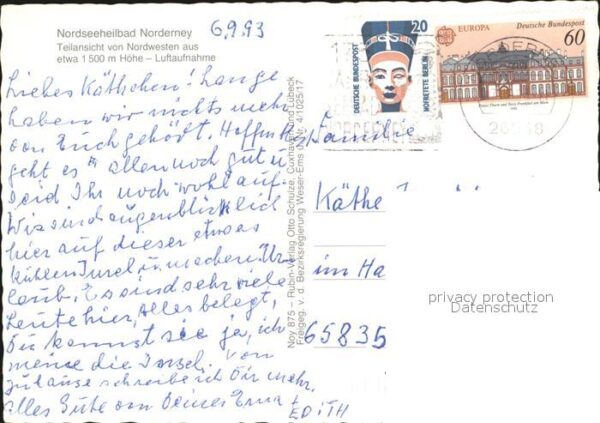 Nordseeheilbad Norderney
Teilansicht von Nordwesten aus
etwa 1 500 m Höhe – Luftaufnahme
6.9.93
Liebes Käthchen! Lange
haben wir nichts mehr
von Euch gehört. Hoffentl.
geht es allen noch gut u.
seid Ihr noch wohlauf.
Wir sind augenblicklich
hier auf dieser etwas
kühlen Insel u. machen Ur-
laub. Es sind sehr viele
Leute hier, Alles belegt,
Du kennst sie ja, ich
meine die Insel. Von
zuhause schreibe ich Dir mehr,
alles Gute von Deiner Erna +
EDITH
Noy 875 – Rubin-Verlag Otto Schulze, Cuxhaven und Lübeck
Freigeg. v. d. Bezirksregierung Weser-Ems u. Nr. 41025/17
20
DEUTSCHE BUNDESPOST
NOFRETETE BERLIN
EUROPA
Deutsche Bundespost
60
Familie
Käthe
im Ha
65835
privacy protection
Datenschutz